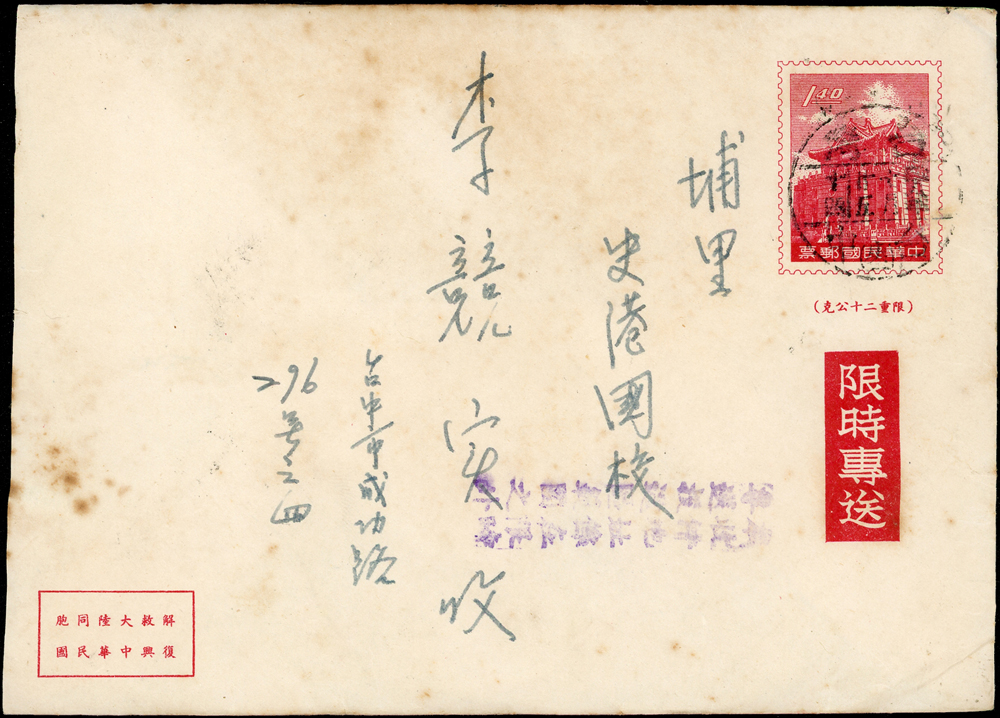 1.40
中華民國郵票
(限重二十公克)
限時專送
埔里
史港國校
李競寰 收
台中市成功路
296号之四
解救大陸同胞
復興中華民國